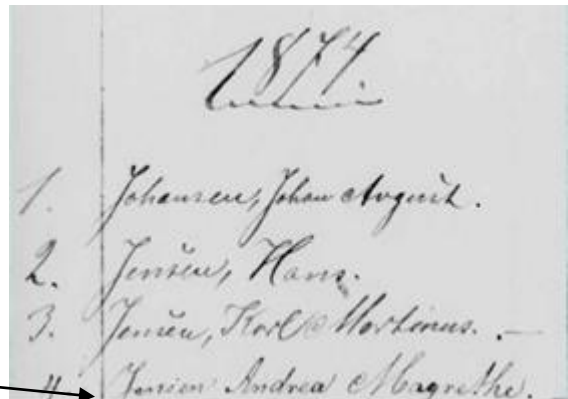 1874
1. Johansen, Johan August.
2. Jensen, Hans.
3. Jensen, Karl Martinus. —
4. Jensen Andrea Magrethe.